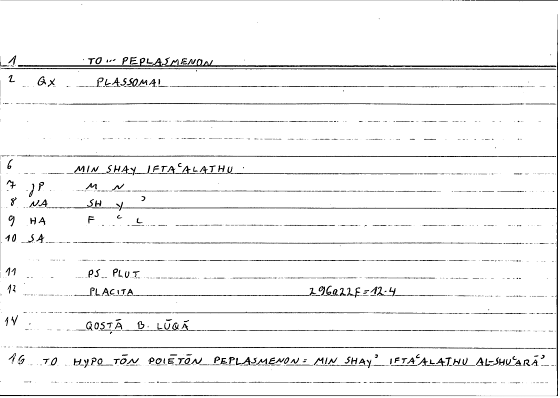 1 TO ... PEPLASMENON
2 GX PLASSOMAI
6 MIN SHAY IFTAᶜALATHU
7 JP M N
8 NA SH Y ʾ
9 HA F ᶜ L
10 SA
11 PS. PLUT.
12 PLACITA 296a22f=12.4
14 QOSṬĀ B. LŪQĀ
16 TO HYPO TŌN POIĒTŌN PEPLASMENON = MIN SHAYʾ IFTAᶜALATHU AL-SHUᶜARĀʾ